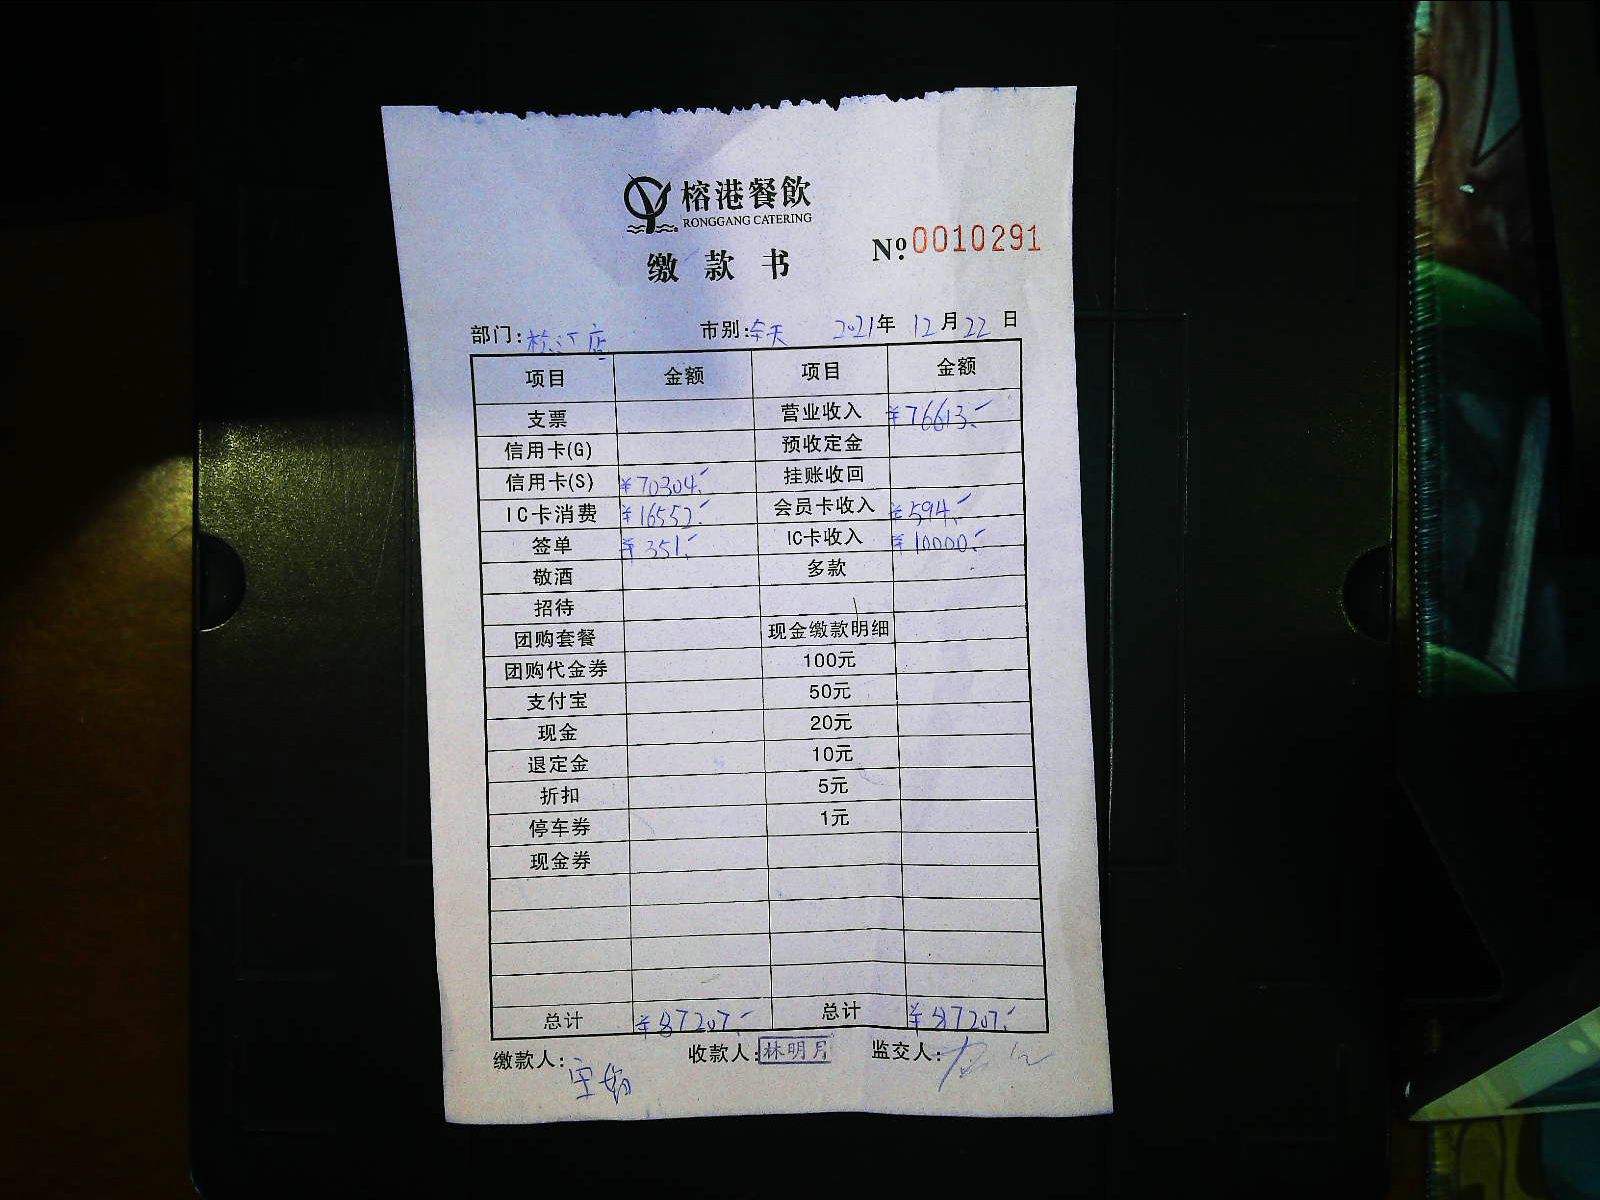 榕港餐飲
RONGGANG CATERING
缴款书 №0010291
部门: 店 市别:全天 2021年 12月22日
项目 金额 项目 金额
支票 营业收入 ¥76613.-
信用卡(G) 预收定金
信用卡(S) ¥70304.- 挂账收回
IC卡消费 ¥16552.- 会员卡收入 ¥594.-
签单 ¥351.- IC卡收入 ¥10000.-
敬酒 多款
招待
团购套餐 现金缴款明细
团购代金券 100元
支付宝 50元
现金 20元
退定金 10元
折扣 5元
停车券 1元
现金券
总计 ¥87207.- 总计 ¥87207.-
缴款人: 收款人:林明月 监交人: